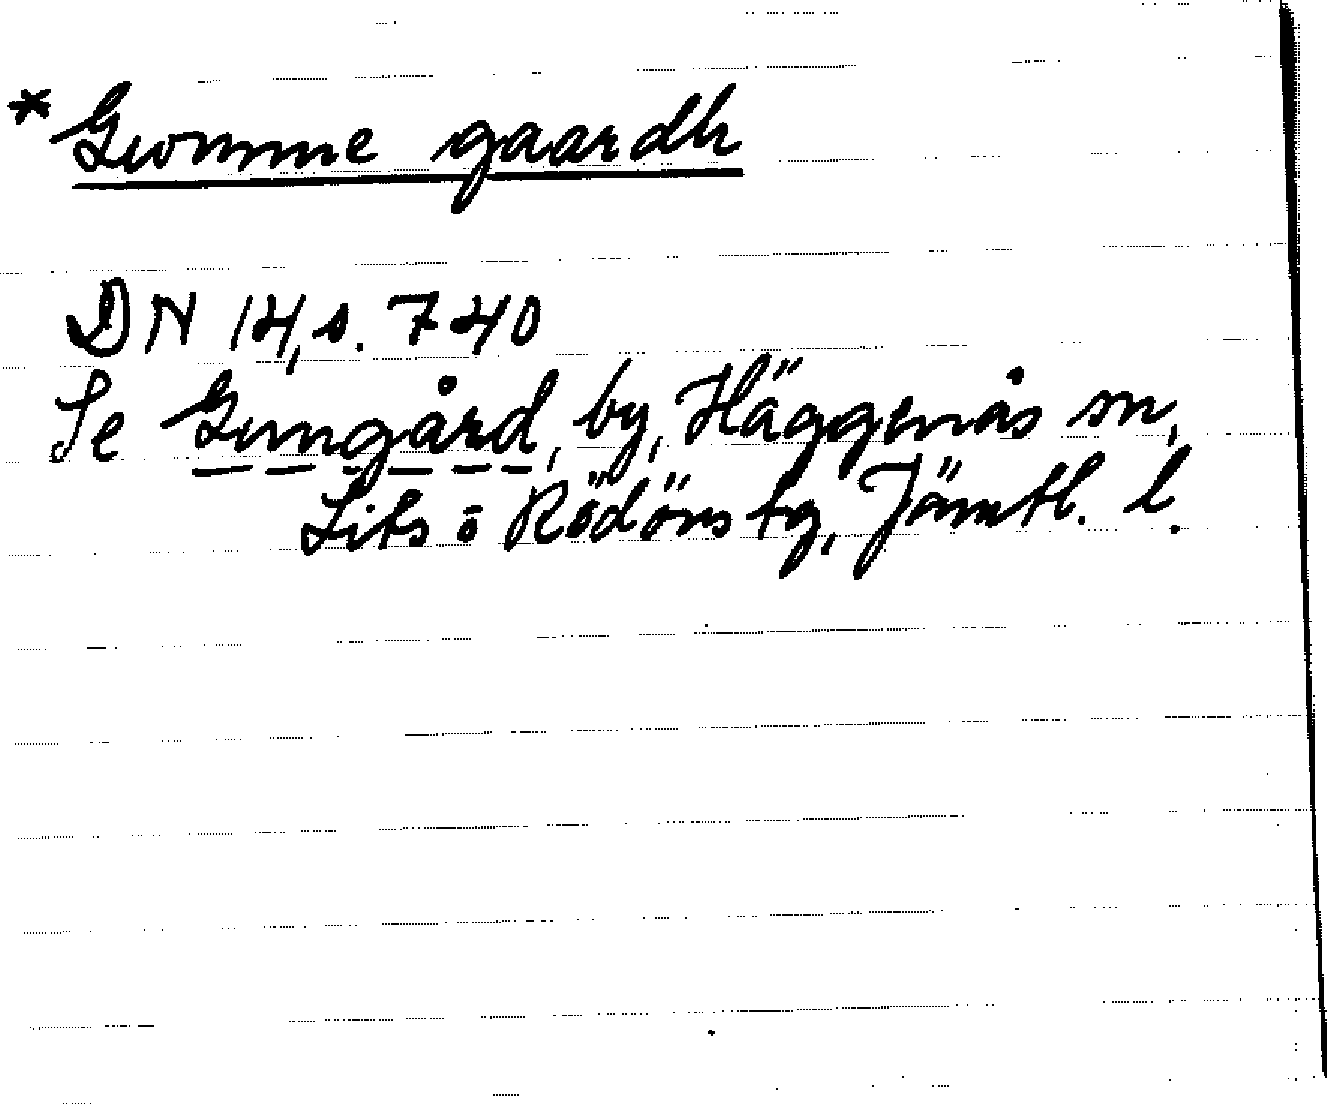 *Gwnne gaardh
DN 14, s. 740
Se Gungård, by, Häggenås sn,
Lits o Rödöns tg, Jämtl. l.